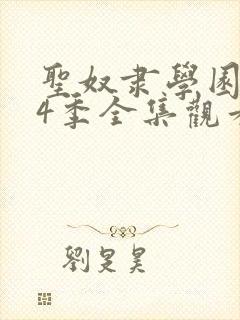 聖奴隶學園
4季全集觀看
劉是昊